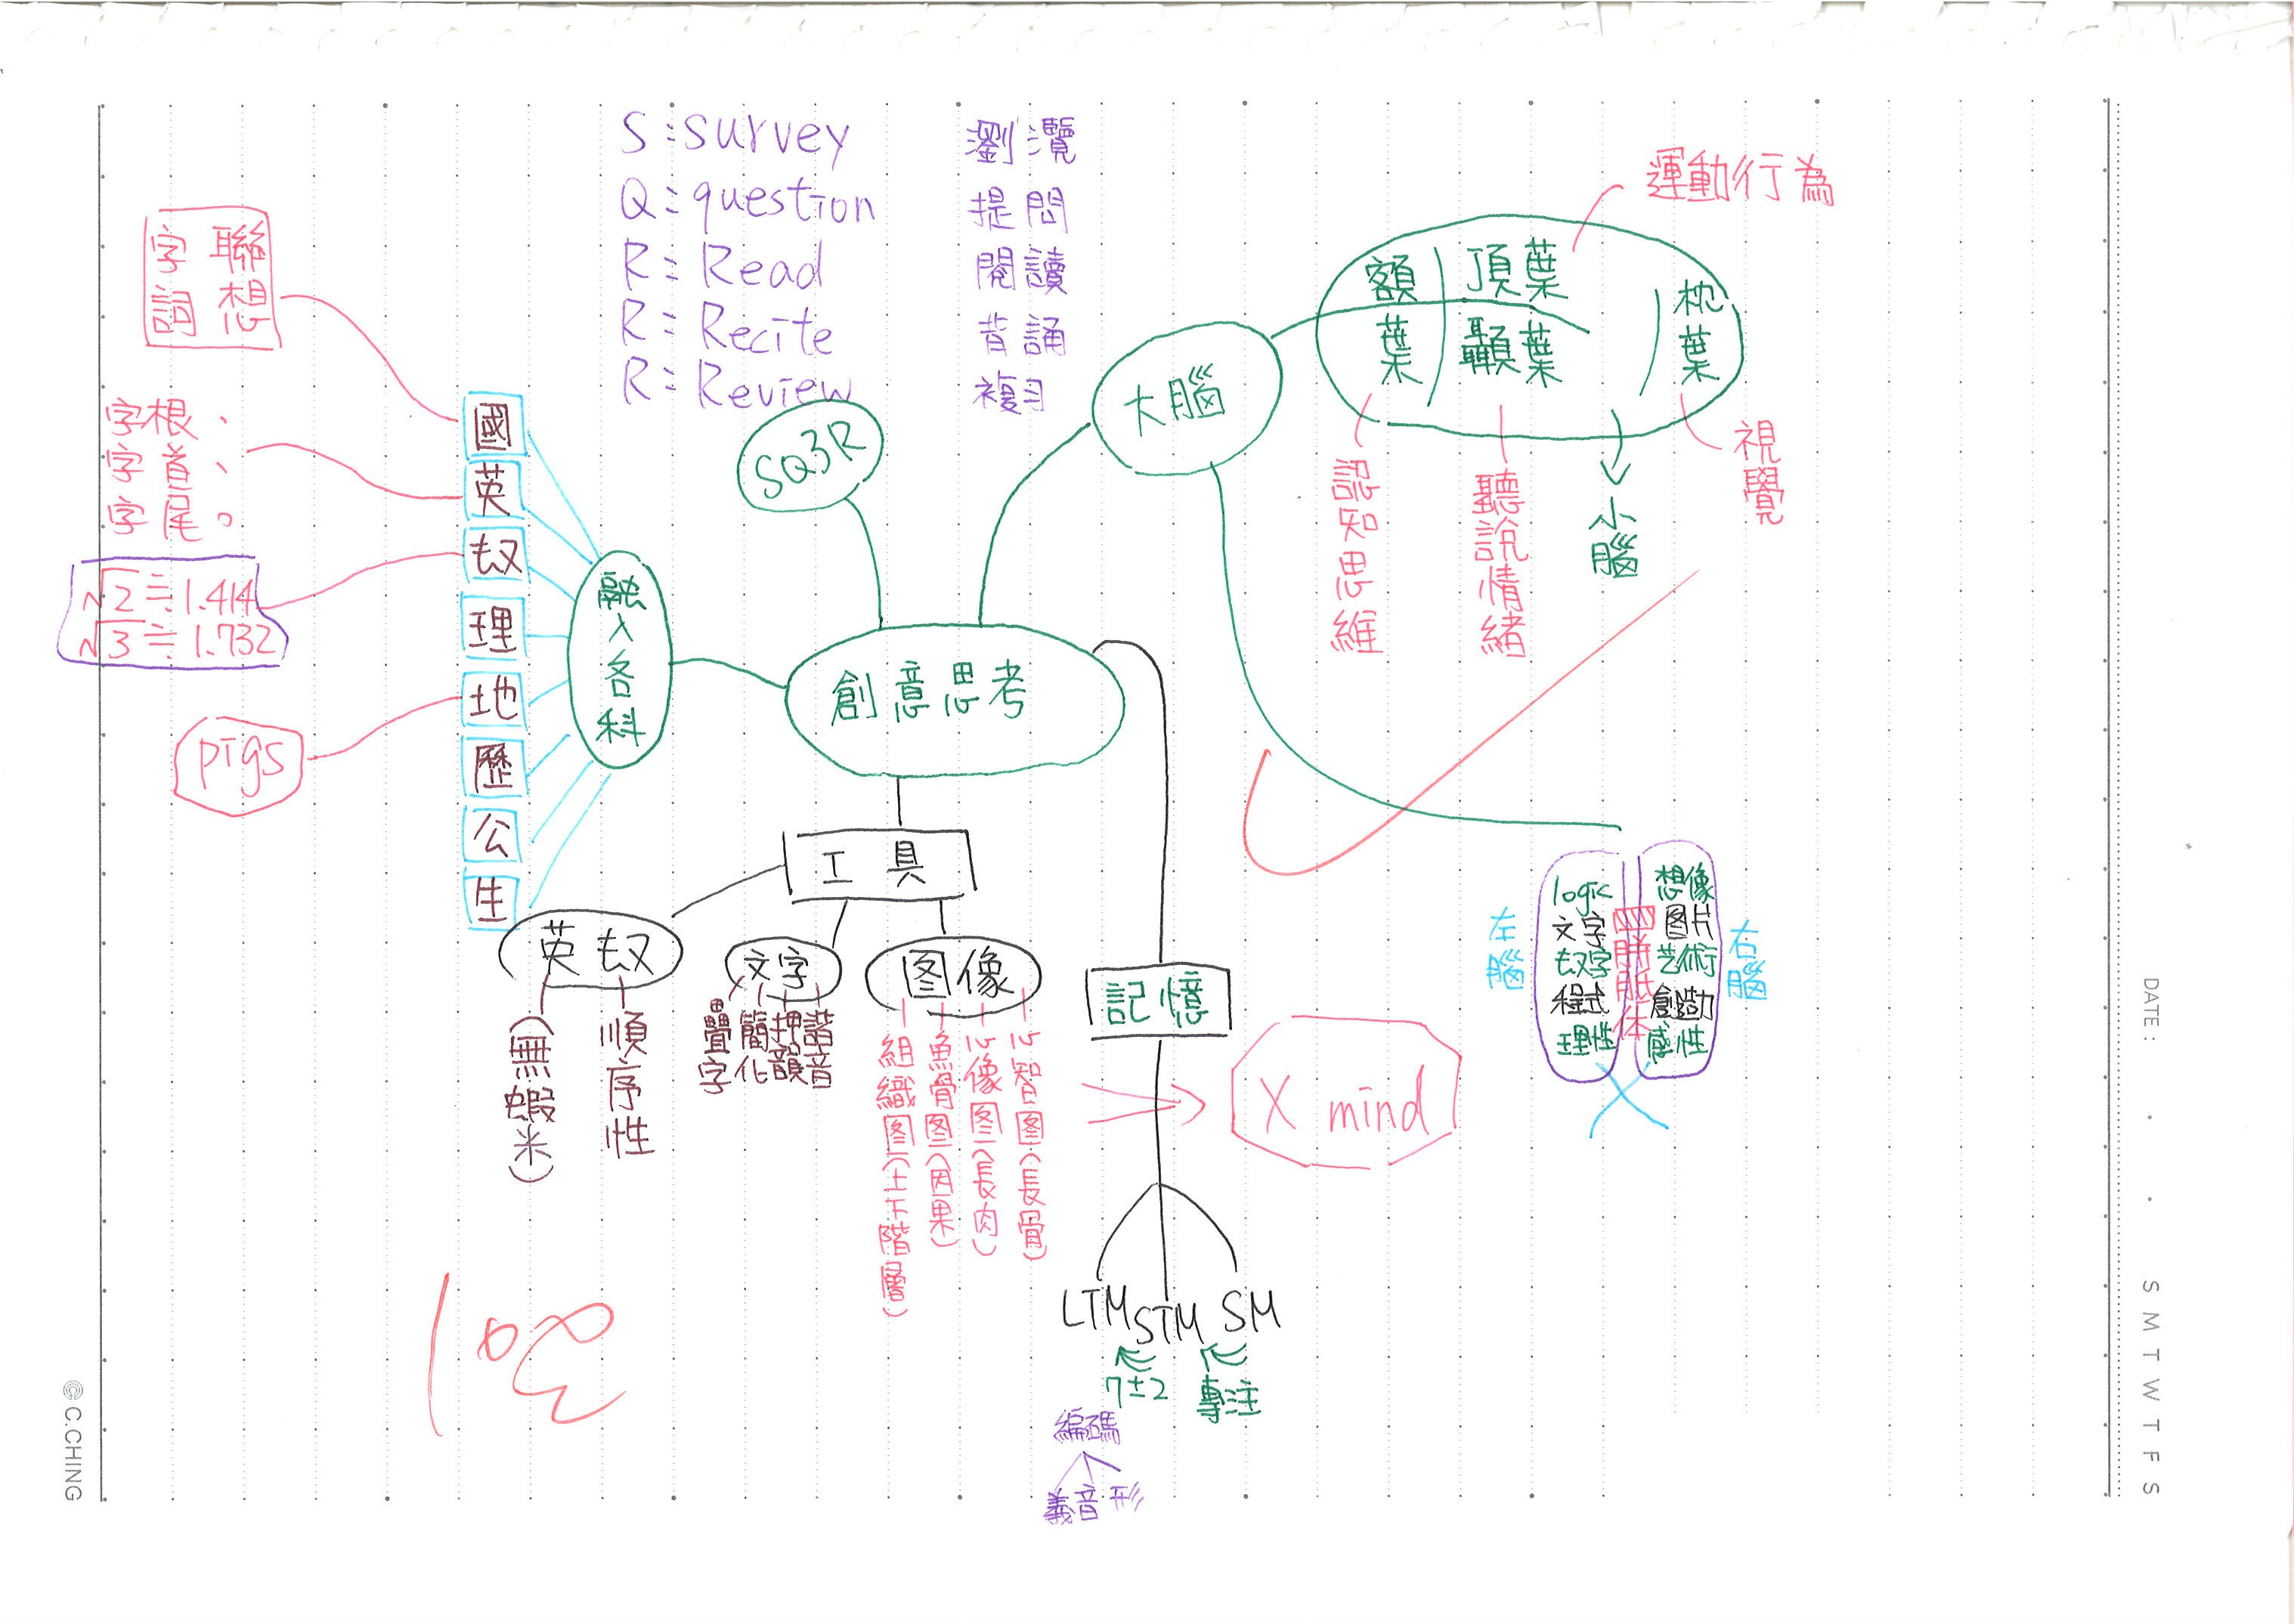 S：survey 瀏灠
Q：question 提問
R：Read 閱讀
R：Recite 背誦
R：Review 複習
SQ3R
大腦
額葉
頂葉
顳葉
枕葉
運動行為
認知思維
聽說情緒
小腦
視覺
聯想
字詞
字根、
字首、
字尾。
√2≒1.414
√3≒1.732
pigs
國
英
理
地
歷
公
生
融入各科
創意思考
工具
英
文字
图像
順序性
(無蝦米)
疊字
簡化
押韻
諧音
組織图(上下階層)
魚骨图(因果)
心像图(長肉)
心智图(長骨)
X mind
記憶
LTM
STM
SM
7±2
專注
編碼
義音形
左腦
logic
文字
程式
理性
胼胝体
想像
图片
艺術
創造力
感性
右腦
DATE： . .
S M T W T F S
© C.CHING